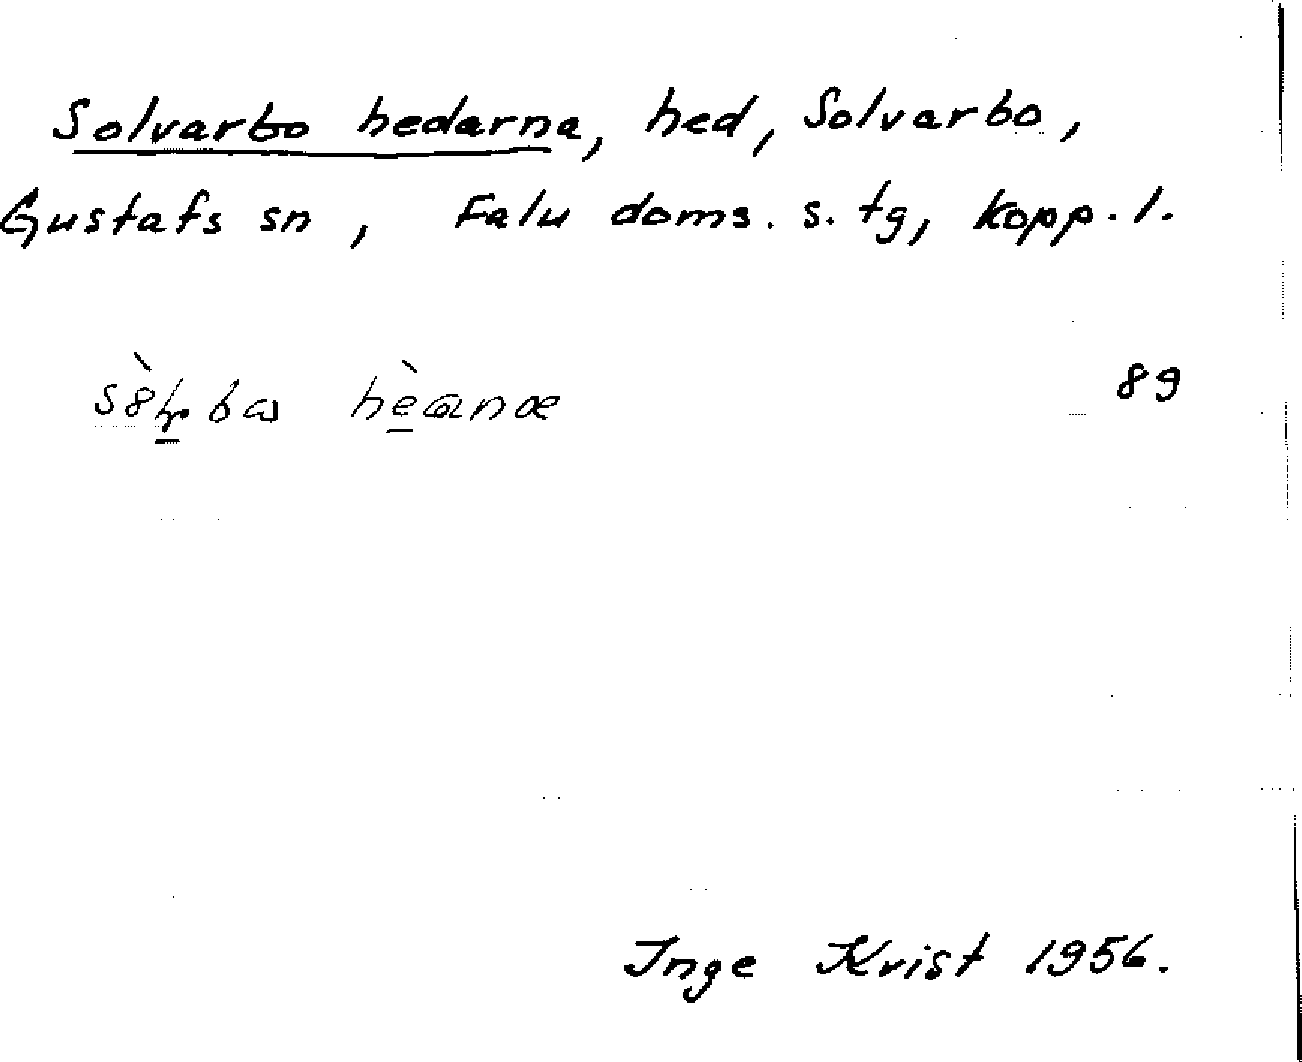 Solvarbo hedarna, hed, Solvarbo,
Gustafs sn, Falu doms. s. tg, Kopp. l.
89
Inge Kvist 1956.